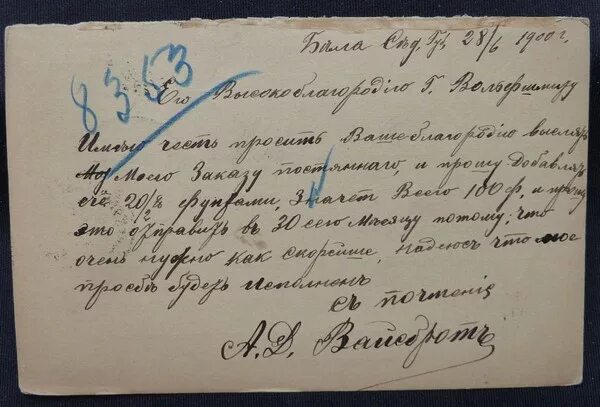 Бяла Сѣд. Губ. 28/6 1900 г.
8353
Его Высокоблагородію Г. Вольфшмиру
Имѣю честь просить Ваше благородіо выслать
Моего Заказу постяннаго, и прошу Добавлять
еще 20/2 фунтами, Значет Всего 100 ф. и прошу
это отправить въ 30 сего Мѣсяцу потому, что
очень нужно как скорѣйше, надеюсь что мое
прозбѣ будет исполнен
съ почтеніе
А. Д. Вайсбротъ